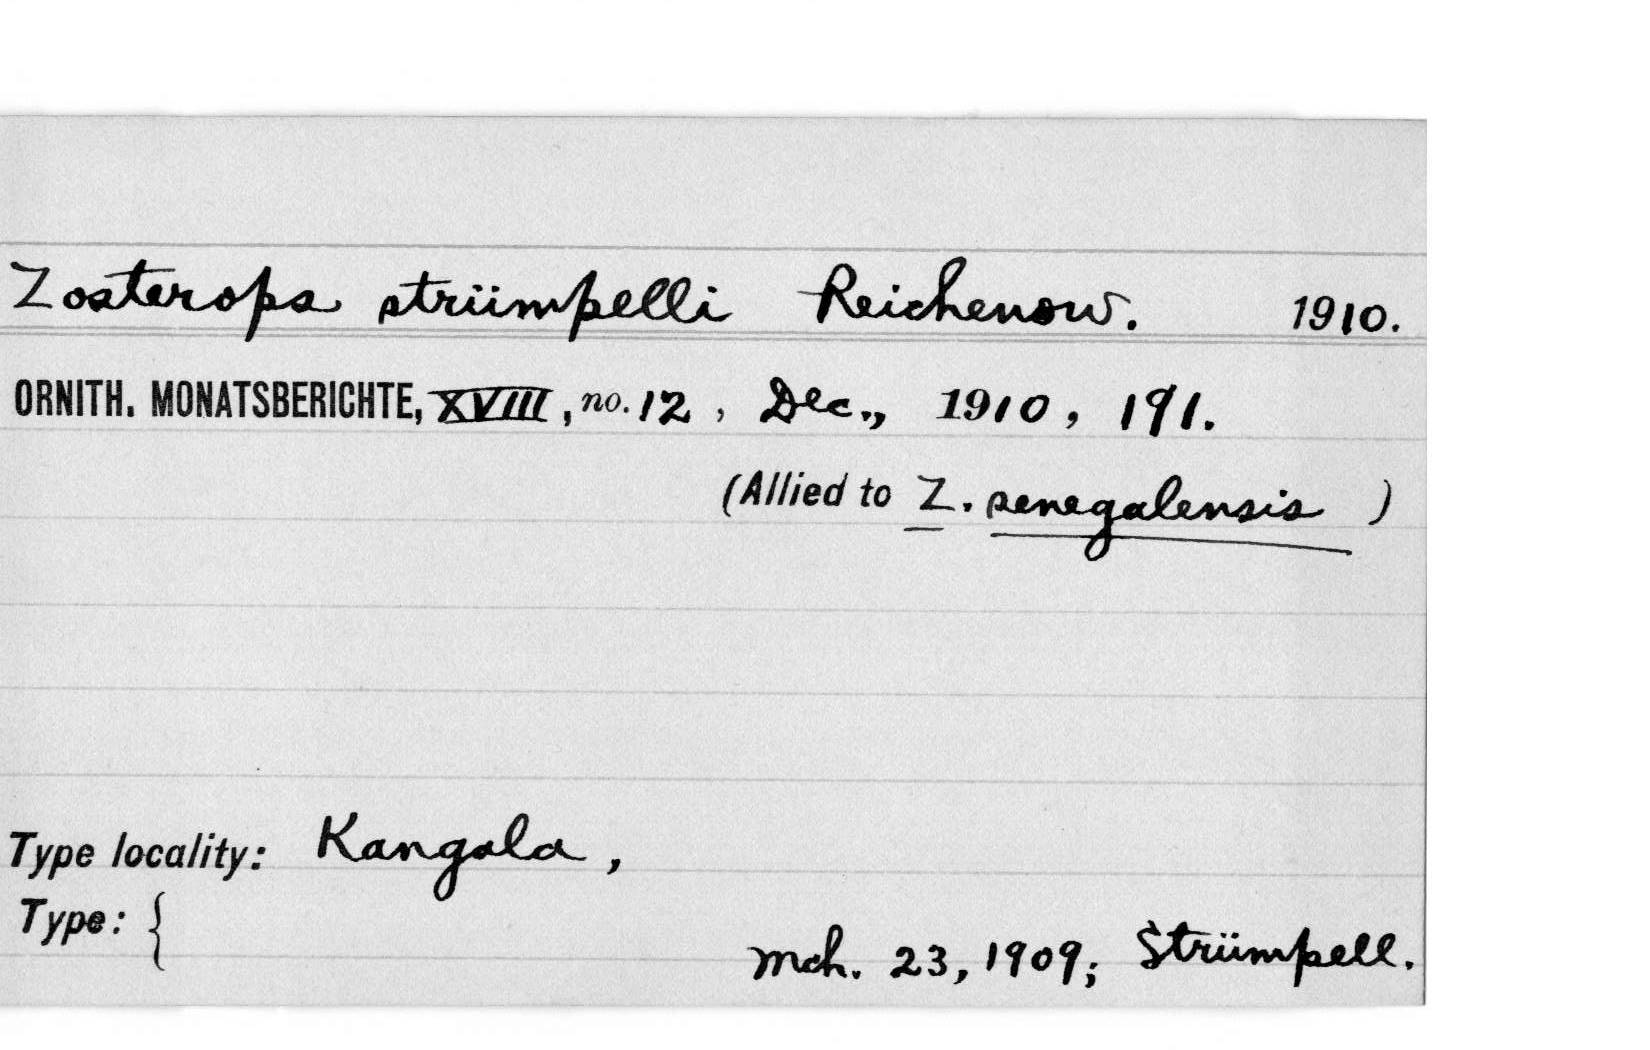 Zosterops strümpelli Reichenow. 1910.
ORNITH. MONATSBERICHTE, XVIII, no. 12, Dec., 1910, 191.
(Allied to Z. senegalensis )
Type locality: Kangala,
Type: {
Mch. 23, 1909; Strümpell.